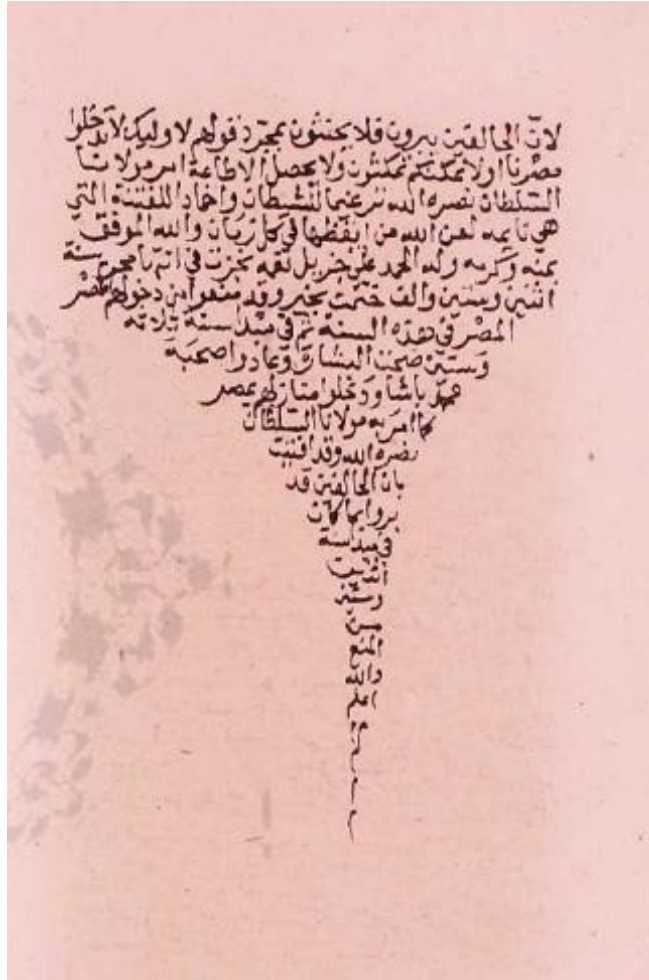 لانّ الحالفين يبرون فلا يحنثون بمجرّد قولهم لا وليكم لا تدخلوا
مصرنا اولا نمكنكم تمكثون ولا يحصل الاطاعة امر مولانا
السلطان نصره الله ترغيما للشيطان واخماد اللفتنة التي
هي نايمه لعن الله من ايقظها في كل زمان والله الموفق
بمنه وكرمه وله الحمد على جزيل نعمه نجزت في محرم سنة
اثنين وستين والف ختمت بخير وقد منعوا من دخولهم مصر
المصر في هذه السنة ثم في مبدا سنة ثلاثه
وستين صحت البشارة وعادوا صحبة
محمد باشا ودخلوا منازلهم بمصر
كما امر به مولانا السلطان
نصره الله وقد افتيت
بان الحالفين قد
بروا بما كان
في مبدا سنة
اثنين
وستين
من
المنع
والله
اعلم